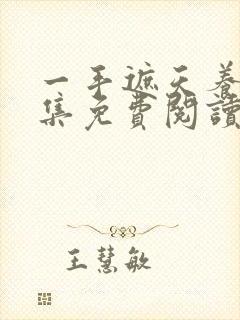 一手遮天養
集免費閱讀
王慧敏